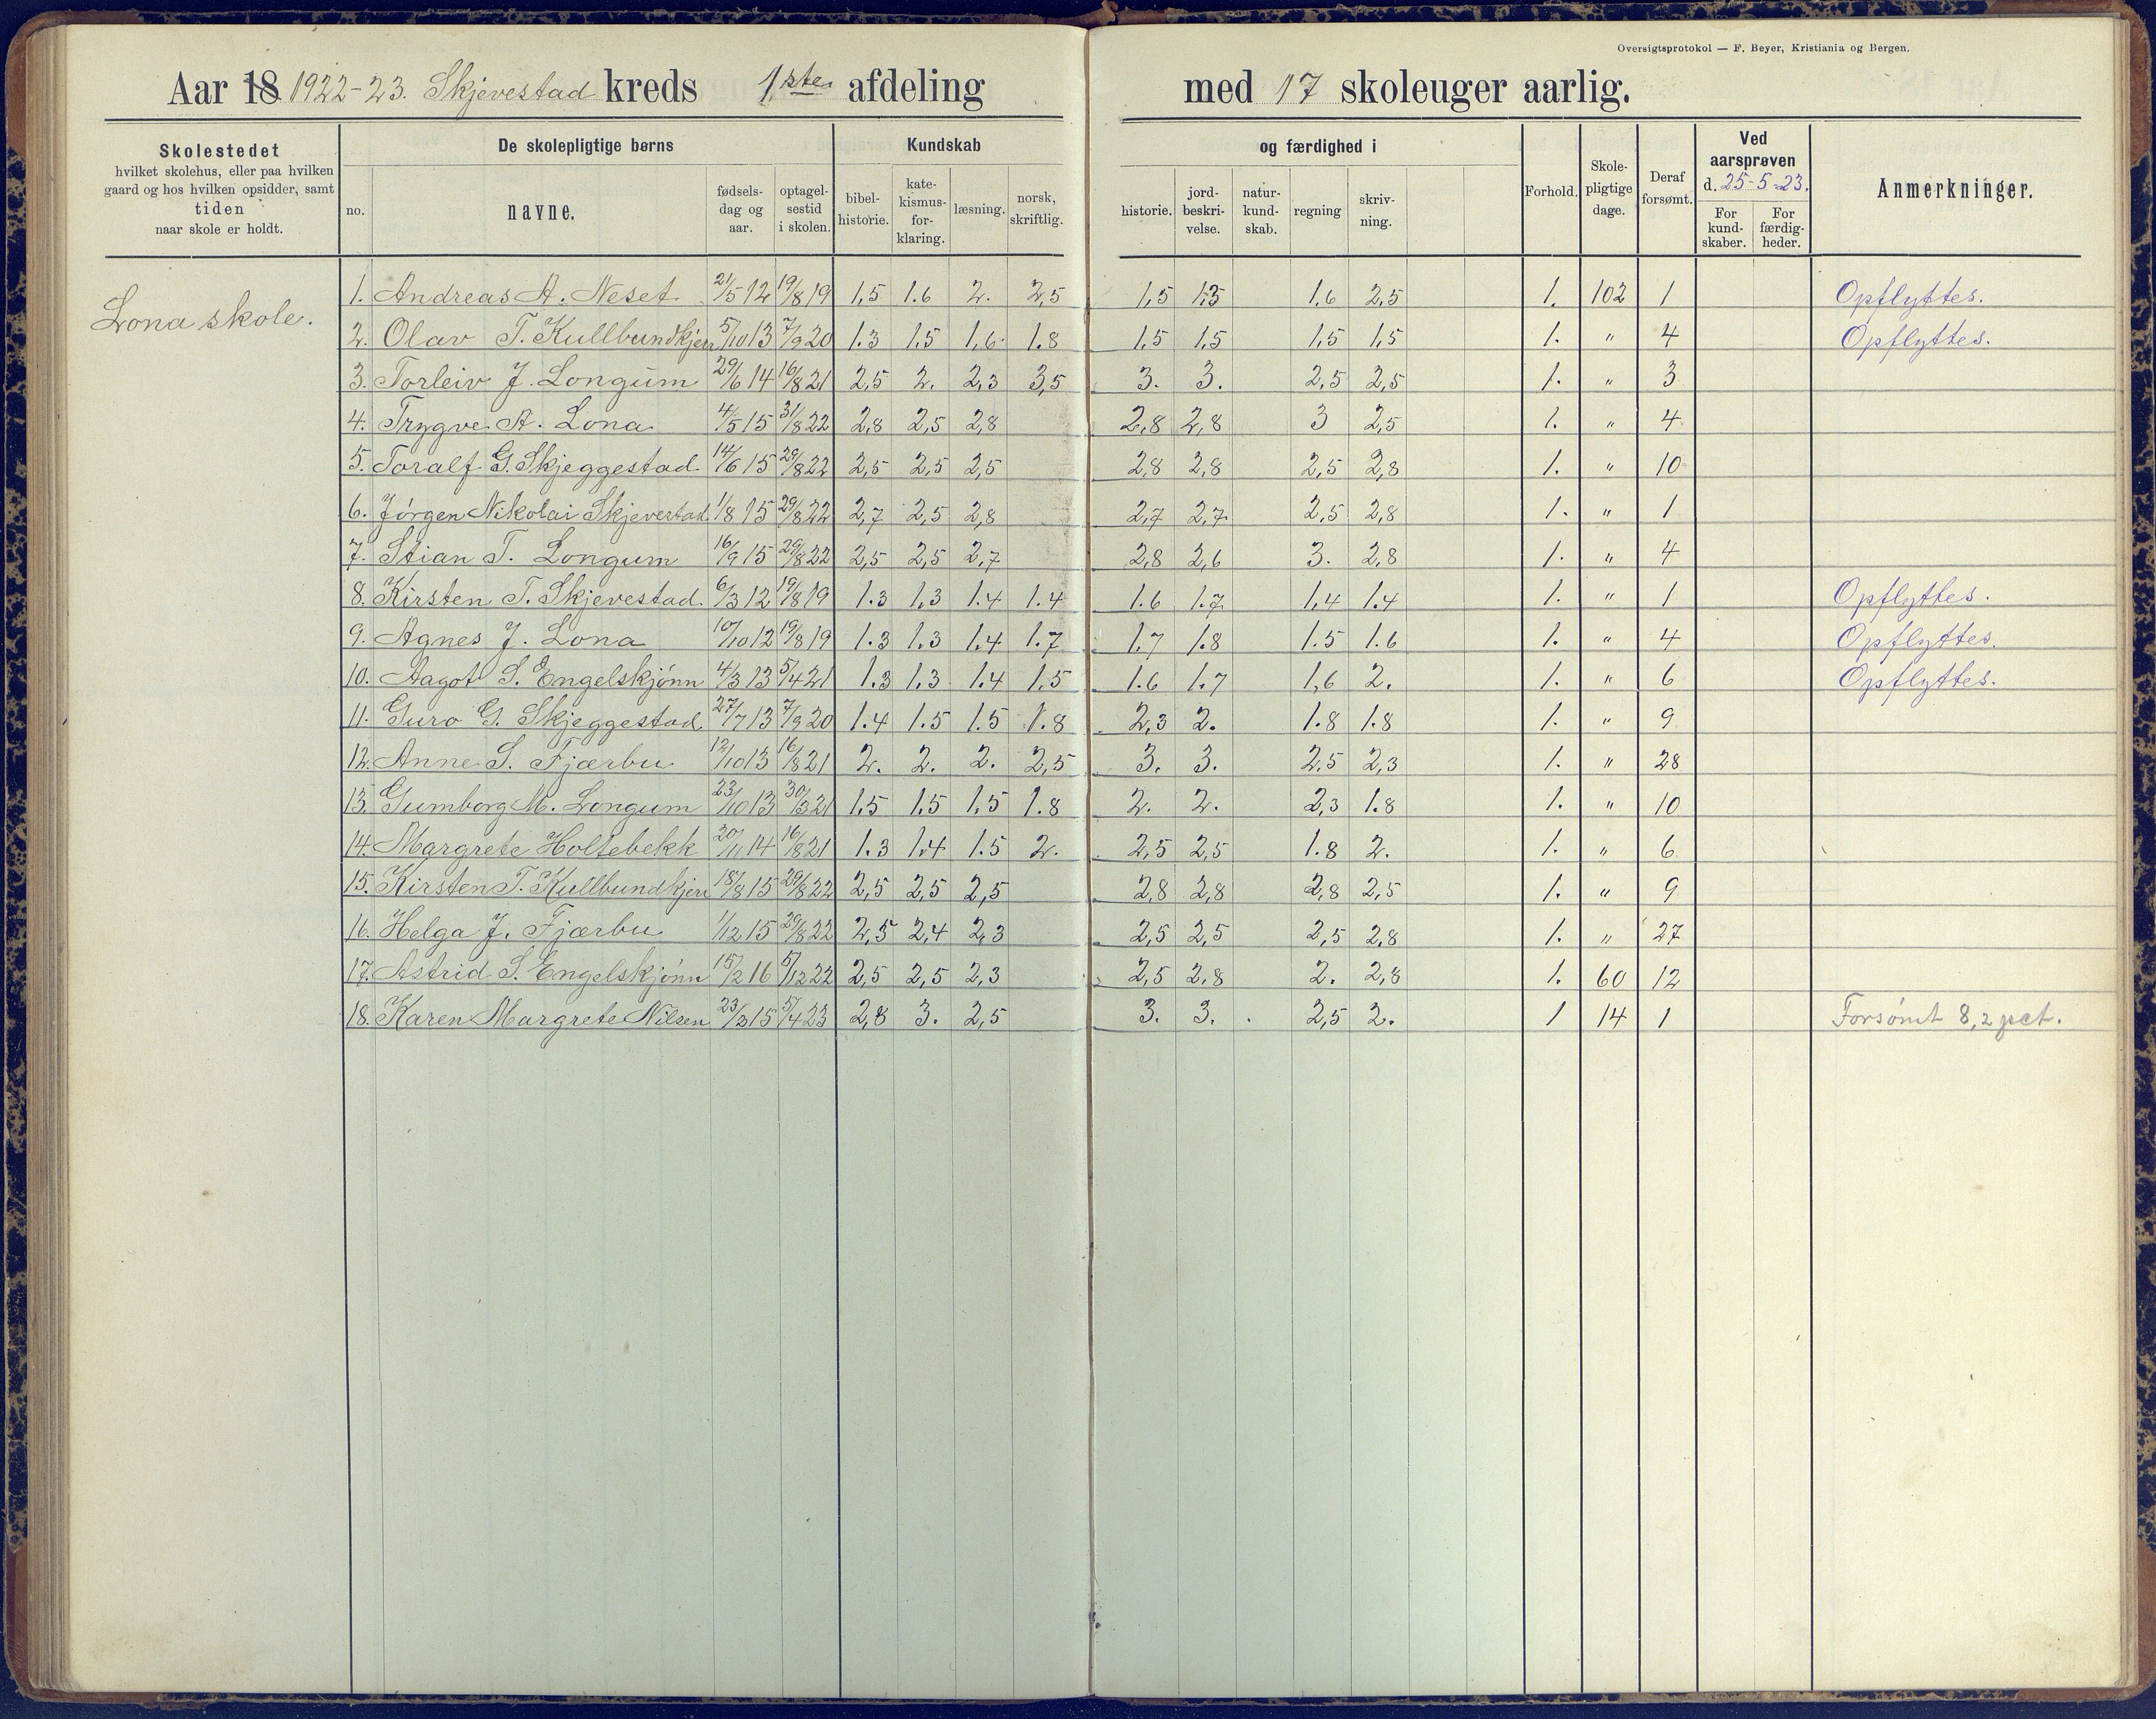 Oversigtsprotokol — F. Beyer, Kristiania og Bergen.
Aar 18 1922-23. Skjevestad kreds 1ste afdeling med 17 skoleuger aarlig.
Skolestedet
hvilket skolehus, eller paa hvilken
gaard og hos hvilken opsidder, samt
tiden
naar skole er holdt.
De skolepligtige børns
no.
navne.
fødsels-
dag og
aar.
optagel-
sestid
i skolen.
Kundskab
bibel-
historie.
kate-
kismus-
for-
klaring.
læsning.
norsk,
skriftlig.
og færdighed i
historie.
jord-
beskri-
velse.
natur-
kund-
skab.
regning
skriv-
ning.
Forhold.
Skole-
pligtige
dage.
Deraf
forsømt.
Ved
aarsprøven
d. 25-5-23.
For
kund-
skaber.
For
færdig-
heder.
Anmerkninger.
Lona skole.
1. Andreas A. Neset 21/5 12 19/8 19 1,5 1.6 2. 2,5 1,5 1.5 1.6 2,5 1. 102 1 Opflyttes.
2. Olav T. Kullbundkjern 5/10 13 7/9 20 1.3 1.5 1,6 1.8 1.5 1.5 1,5 1,5 1. " 4 Opflyttes.
3. Torleiv J. Longum 29/6 14 16/8 21 2,5 2. 2,3 3,5 3. 3. 2,5 2,5 1. " 3
4. Trygve A. Lona 4/5 15 31/8 22 2,8 2,5 2,8 2,8 2,8 3 2,5 1. " 4
5. Toralf G. Skjeggestad 14/6 15 29/8 22 2,5 2,5 2,5 2,8 2,8 2,5 2,8 1. " 10
6. Jørgen Nikolai Skjevestad 1/8 15 29/8 22 2,7 2,5 2,8 2,7 2,7 2,5 2,8 1. " 1
7. Stian T. Longum 16/9 15 29/8 22 2,5 2,5 2,7 2,8 2,6 3. 2,8 1. " 4
8. Kirsten T. Skjevestad 6/3 12 19/8 19 1.3 1.3 1.4 1.4 1.6 1.7 1,4 1.4 1. " 1 Opflyttes.
9. Agnes J. Lona 10/10 12 19/8 19 1.3 1.3 1.4 1.7 1.7 1.8 1.5 1.6 1. " 4 Opflyttes.
10. Aagot S. Engelskjønn 4/3 13 5/4 21 1.3 1.3 1.4 1.5 1.6 1.7 1,6 2. 1. " 6 Opflyttes.
11. Guro G. Skjeggestad 27/7 13 7/9 20 1.4 1.5 1.5 1.8 2,3 2. 1.8 1.8 1. " 9
12. Anne S. Fjærbu 12/10 13 16/8 21 2. 2. 2. 2,5 3. 3. 2,5 2,3 1. " 28
13. Gumborg M. Longum 23/10 13 30/3 21 1,5 1,5 1,5 1.8 2. 2. 2,3 1.8 1. " 10
14. Margrete Holtebekk 20/11 14 16/8 21 1.3 1.4 1.5 2. 2,5 2,5 1.8 2. 1. " 6
15. Kirsten T. Kullbundkjern 18/8 15 29/8 22 2,5 2,5 2,5 2,8 2,8 2,8 2,5 1. " 9
16. Helga J. Fjærbu 1/12 15 29/8 22 2,5 2,4 2,3 2,5 2,5 2,5 2,8 1. " 27
17. Astrid S. Engelskjønn 15/2 16 5/12 22 2,5 2,5 2,3 2,5 2,8 2. 2,8 1. 60 12
18. Karen Margrete Nilsen 23/3 15 5/4 23 2,8 3. 2,5 3. 3. 2,5 2. 1 14 1 Forsømt 8,2 pct.